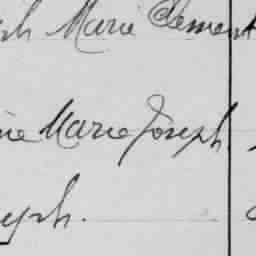 ph Marie Clement
ne Marie Joseph
seph.